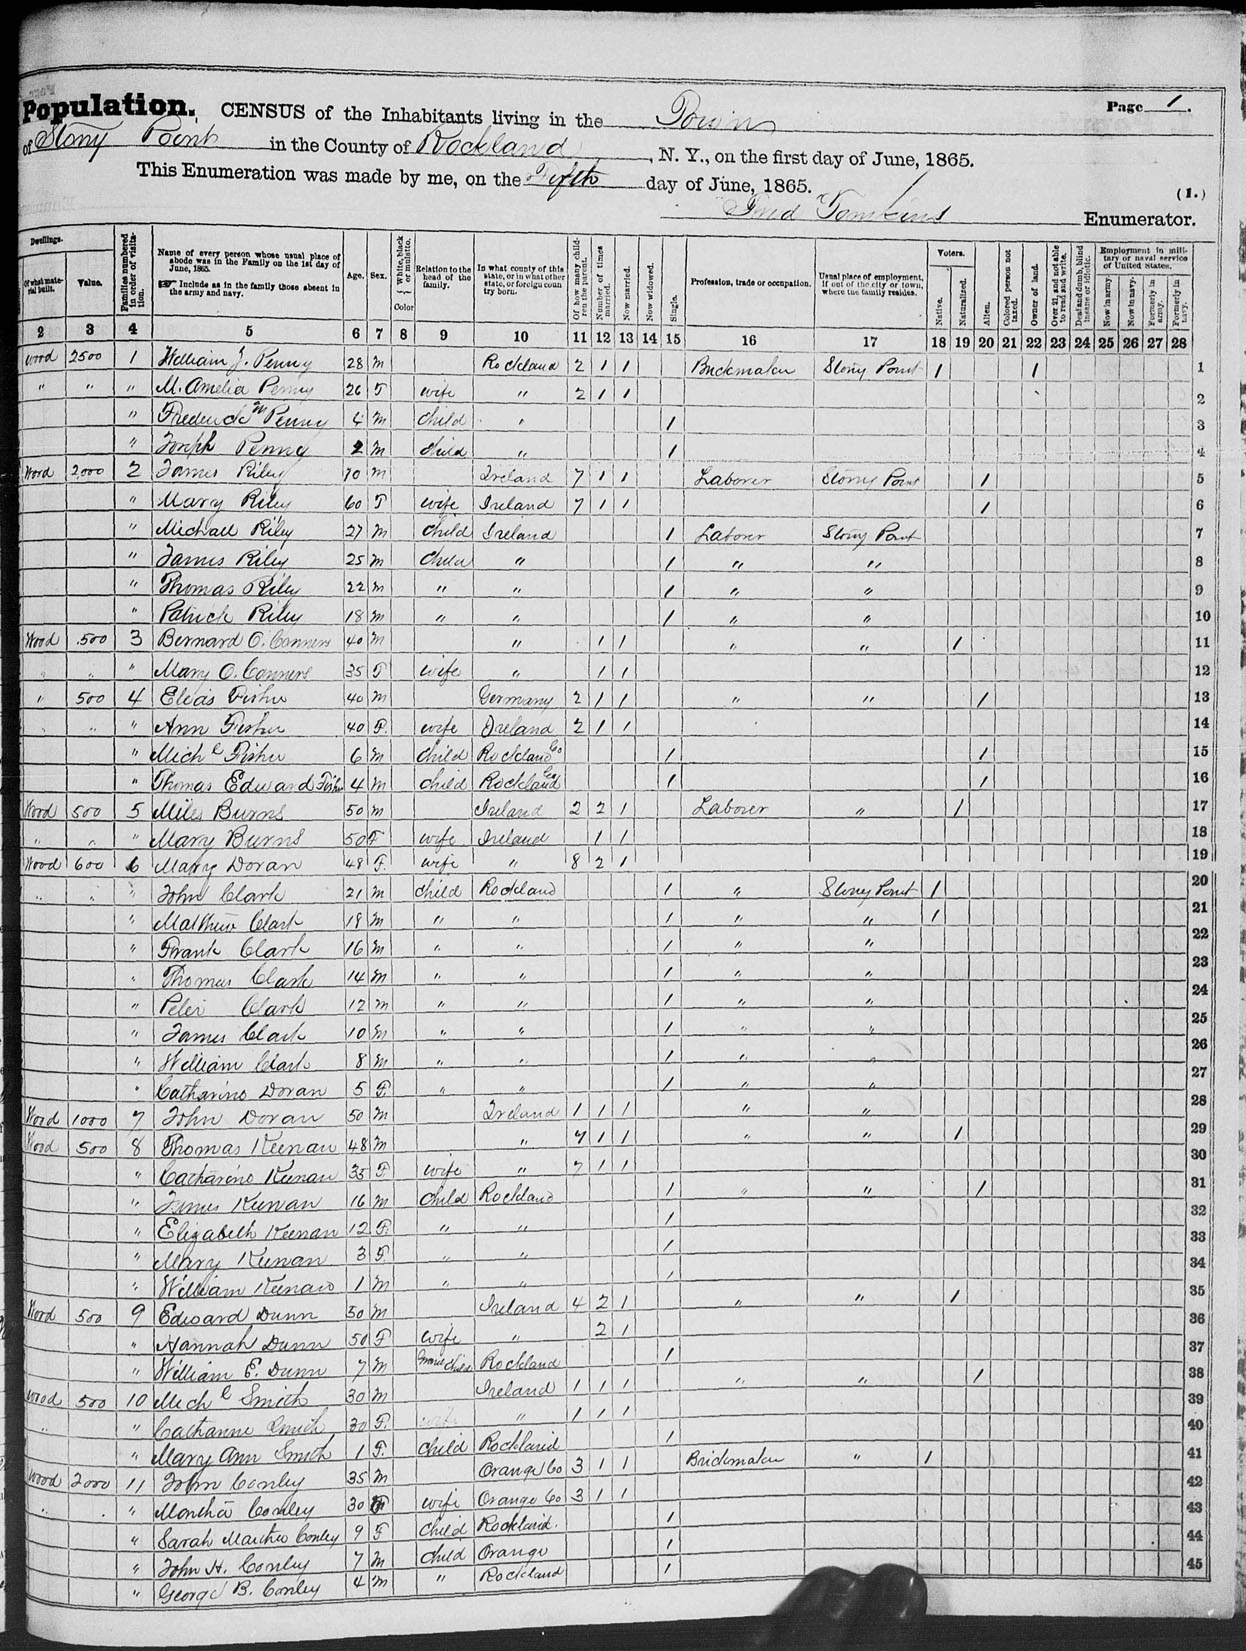 Population. CENSUS of the Inhabitants living in the Town Page 1.
of Stony Point in the County of Rockland, N. Y., on the first day of June, 1865.
This Enumeration was made by me, on the Fifth day of June, 1865. (1.)
Fred Tomkins Enumerator.
Dwellings. Of what material built. Value. Families numbered in order of visitation. Name of every person whose usual place of abode was in the Family on the 1st day of June, 1865. Include as in the family those absent in the army and navy. Age. Sex. White, black or mulatto. Color Relation to the head of the family. In what county of this state, or in what other state, or foreign country born. Of how many children the parent. Number of times married. Now married. Now widowed. Single. Profession, trade or occupation. Usual place of employment, if out of the city or town, where the family resides. Voters. Native. Naturalized. Alien. Colored person not taxed. Owner of land. Over 21, and not able to read and write. Deaf and dumb, blind insane or idiotic. Employment in military or naval service of United States. Now in army. Now in navy. Formerly in army. Formerly in navy.
2 3 4 5 6 7 8 9 10 11 12 13 14 15 16 17 18 19 20 21 22 23 24 25 26 27 28
Wood 2500 1 William J. Penny 28 M Rockland 2 1 1 Brickmaker Stony Point 1 1 1
" " " M. Amelia Penny 26 F wife " 2 1 1 2
" Frederick W Penny 4 M child " 1 3
" Joseph Penny 2 M child " 1 4
Wood 2,000 2 James Riley 70 M Ireland 7 1 1 Laborer Stony Point 1 5
" Mary Riley 60 F wife Ireland 7 1 1 1 6
" Michael Riley 27 M Child Ireland 1 Laborer Stony Point 7
" James Riley 25 M Child " 1 " " 8
" Thomas Riley 22 M " " 1 " " 9
" Patrick Riley 18 M " " 1 " " 10
Wood 500 3 Bernard O. Conners 40 M " 1 1 " " 1 11
" " " Mary O. Conners 35 F wife " 1 1 12
" 500 4 Elias Fisher 40 M Germany 2 1 1 " " 1 13
" " " Ann Fisher 40 F. wife Ireland 2 1 1 14
" Mich l Fisher 6 M child Rockland Co 1 1 15
" Thomas Edward Fisher 4 M child Rockland Co 1 1 16
Wood 500 5 Miles Burns 50 M Ireland 2 2 1 Laborer " 1 17
" " " Mary Burns 50 F wife Ireland 1 1 18
Wood 600 6 Mary Doran 48 F. wife " 8 2 1 19
" " " John Clark 21 M child Rockland 1 " Stony Point 1 20
" Matthew Clark 18 M " " 1 " " 1 21
" Frank Clark 16 M " " 1 " " 22
" Thomas Clark 14 M " " 1 " " 23
" Peter Clark 12 M " " 1 " " 24
" James Clark 10 M " " 1 " " 25
" William Clark 8 M " " 1 " " 26
" Catharine Doran 5 F. " " 1 " " 27
Wood 1000 7 John Doran 50 M Ireland 1 1 1 " " 28
Wood 500 8 Thomas Keenan 48 M " 7 1 1 " " 1 29
" Catharine Keenan 35 F. wife " 7 1 1 30
" James Keenan 16 M Child Rockland 1 " " 1 31
" Elizabeth Keenan 12 F. " " 1 32
" Mary Keenan 3 F. " " 1 33
" William Keenan 1 M " " 1 34
Wood 500 9 Edward Dunn 50 M Ireland 4 2 1 " " 1 35
" Hannah Dunn 50 F. wife " 2 1 36
" William E. Dunn 7 M Grand child Rockland 1 37
Wood 500 10 Mich l Smith 30 M Ireland 1 1 1 " " 1 38
" " Catharine Smith 30 F. wife " 1 1 1 39
" Mary Ann Smith 1 F. child Rockland 1 40
Wood 2000 11 John Conley 35 M Orange Co 3 1 1 Brickmaker " 1 41
" " " Martha Conley 30 F wife Orange Co 3 1 1 42
" Sarah Martha Conley 9 F child Rockland. 1 43
" John H. Conley 7 M child Orange 1 44
" George B. Conley 4 M " Rockland 1 45